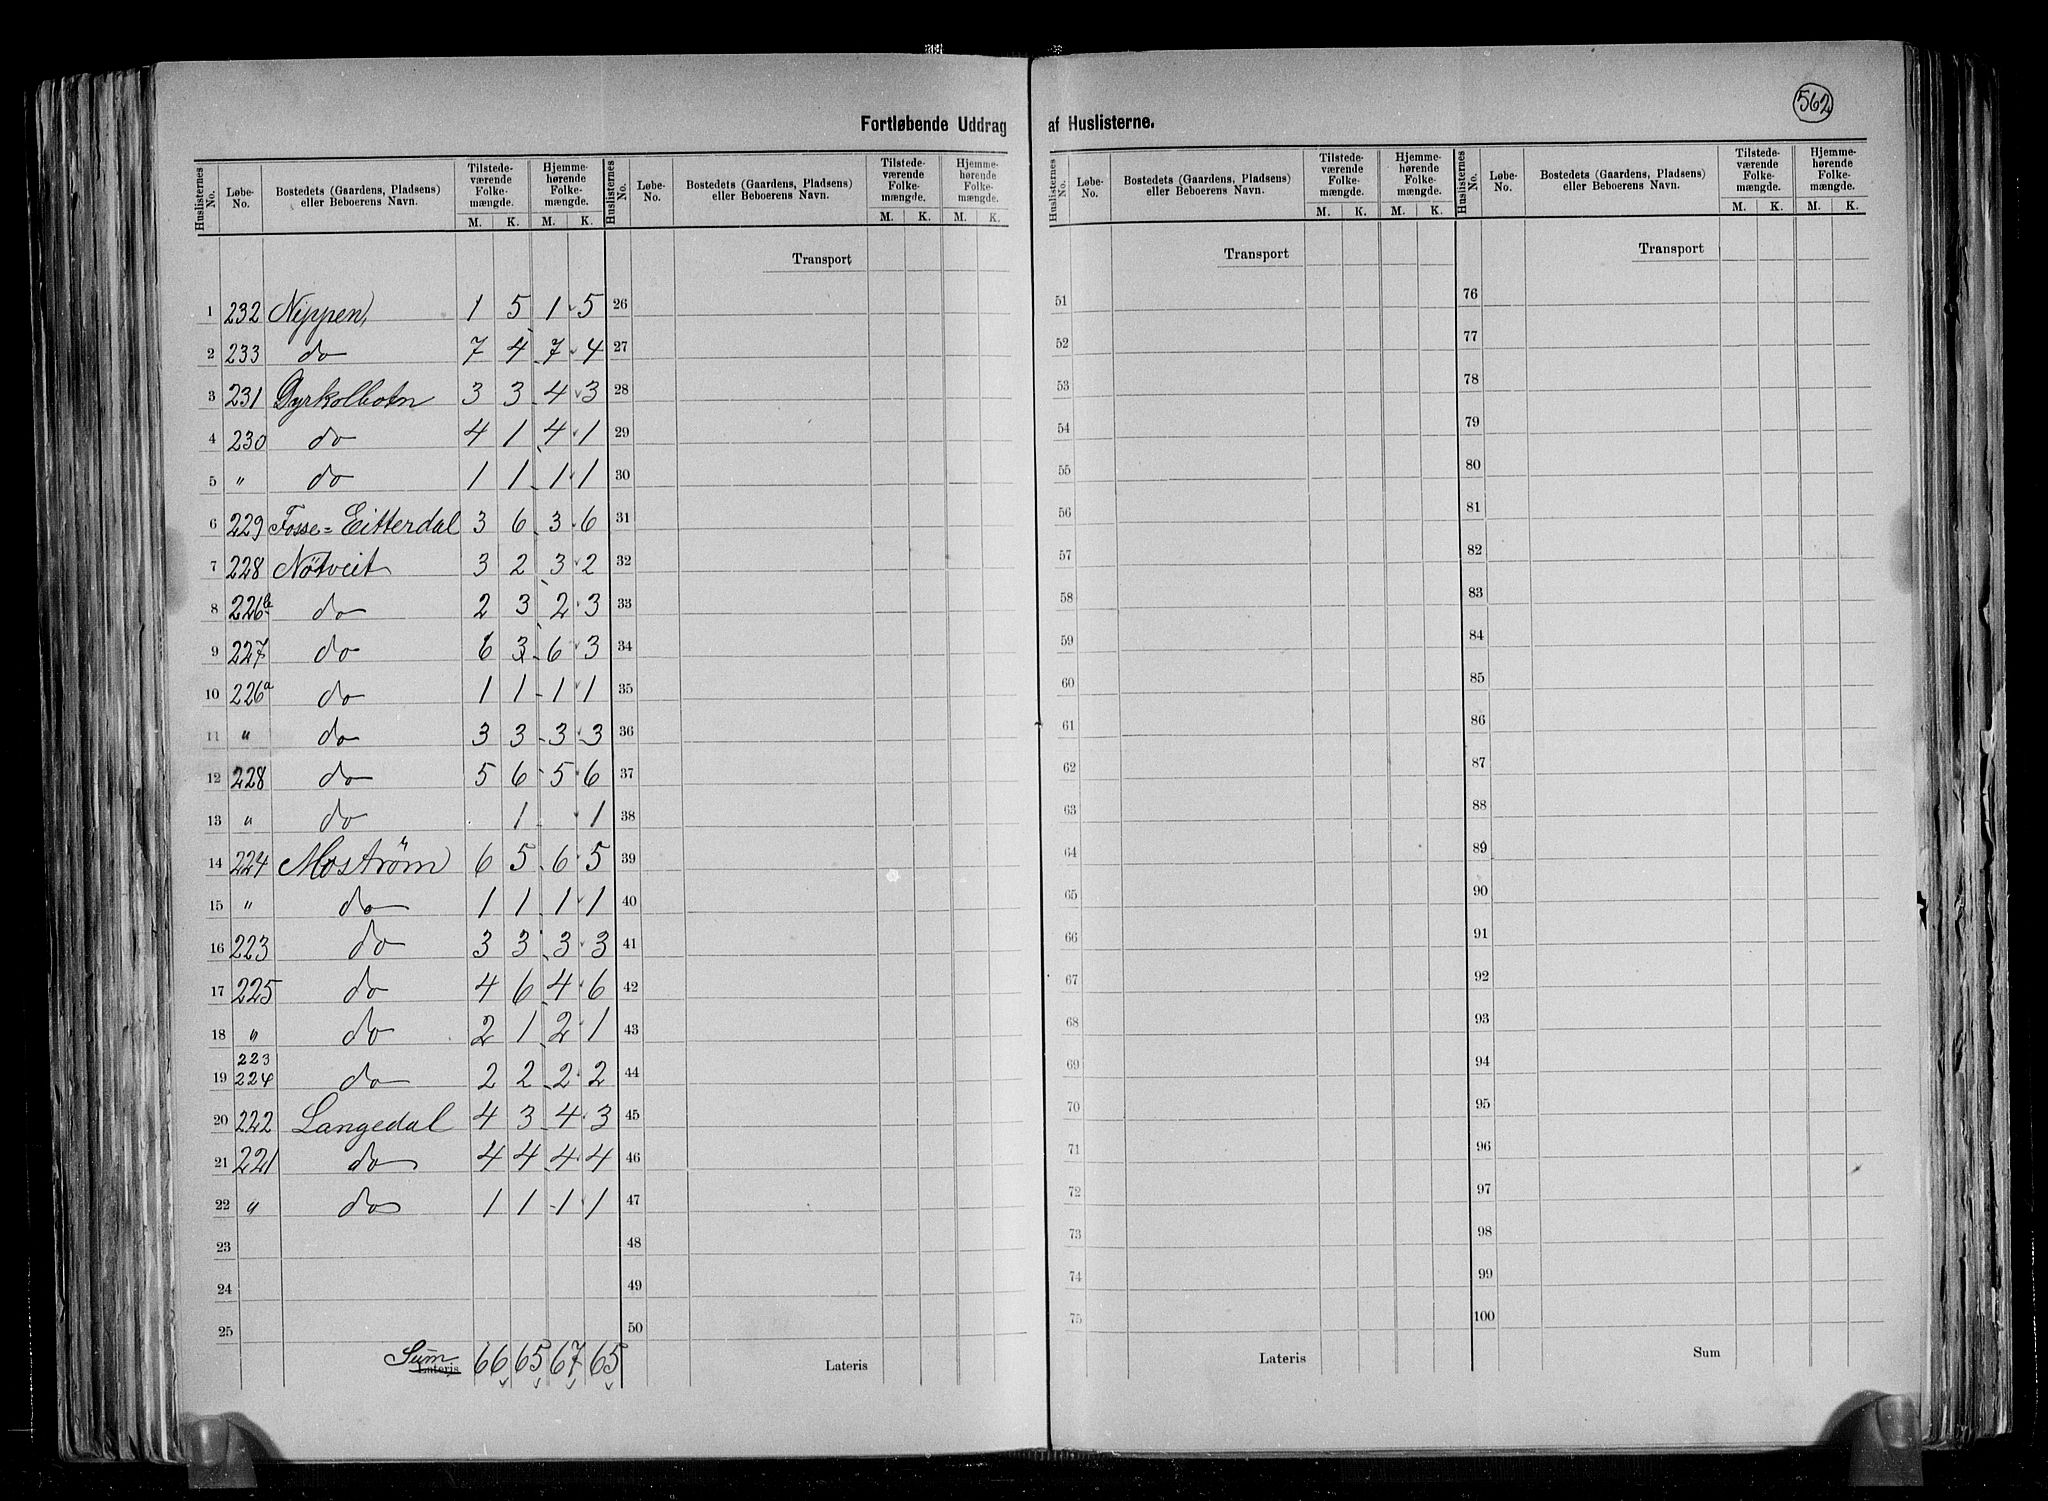 562
Fortløbende Uddrag af Huslisterne.
Huslisternes No. Løbe-No. Bostedets (Gaardens, Pladsens) eller Beboerens Navn. Tilstede-værende Folke-mængde. M. K. Hjemme-hørende Folke-mængde. M. K.
Huslisternes No. Løbe-No. Bostedets (Gaardens, Pladsens) eller Beboerens Navn. Tilstede-værende Folke-mængde. M. K. Hjemme-hørende Folke-mængde. M. K.
Huslisternes No. Løbe-No. Bostedets (Gaardens, Pladsens) eller Beboerens Navn. Tilstede-værende Folke-mængde. M. K. Hjemme-hørende Folke-mængde. M. K.
Huslisternes No. Løbe-No. Bostedets (Gaardens, Pladsens) eller Beboerens Navn. Tilstede-værende Folke-mængde. M. K. Hjemme-hørende Folke-mængde. M. K.
1 232 Nippen, 1 5 1 5
2 233 do 7 4 7 4
3 231 Dyrkolbotn 3 3 4 3
4 230 do 4 1 4 1
5 " do 1 1 1 1
6 229 Fosse=Eitterdal 3 6 3 6
7 228 Nötveit 3 2 3 2
8 226b do 2 3 2 3
9 227 do 6 3 6 3
10 226a do 1 1 1 1
11 " do 3 3 3 3
12 228 do 5 6 5 6
13 " do 1 1
14 224 Moström 6 5 6 5
15 " do 1 1 1 1
16 223 do 3 3 3 3
17 225 do 4 6 4 6
18 " do 2 1 2 1
19 223 224 do 2 2 2 2
20 222 Langedal 4 3 4 3
21 221 do 4 4 4 4
22 " do 1 1 1 1
23
24
25
Sum Lateris 66 65 67 65
Transport
26
27
28
29
30
31
32
33
34
35
36
37
38
39
40
41
42
43
44
45
46
47
48
49
50
Lateris
Transport
51
52
53
54
55
56
57
58
59
60
61
62
63
64
65
66
67
68
69
70
71
72
73
74
75
Lateris
Transport
76
77
78
79
80
81
82
83
84
85
86
87
88
89
90
91
92
93
94
95
96
97
98
99
100
Sum